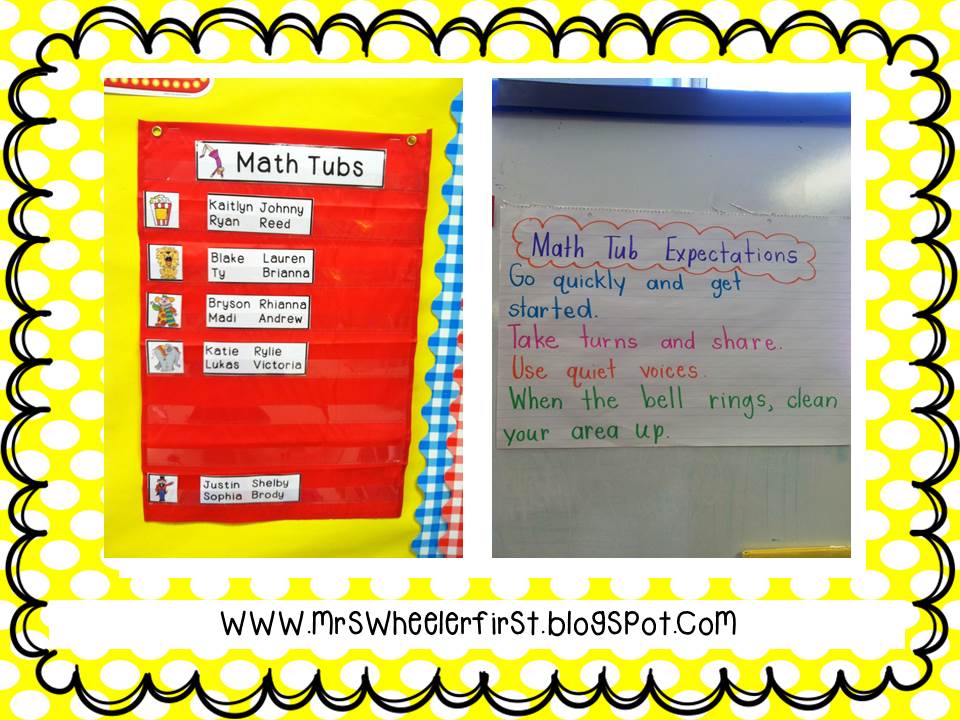 Math Tubs
Kaitlyn Johnny
Ryan Reed
Blake Lauren
Ty Brianna
Bryson Rhianna
Madi Andrew
Katie Rylie
Lukas Victoria
Justin Shelby
Sophia Brody
Math Tub Expectations
Go quickly and get
started.
Take turns and share.
Use quiet voices.
When the bell rings, clean
your area up.
www.mrswheelerfirst.blogspot.com